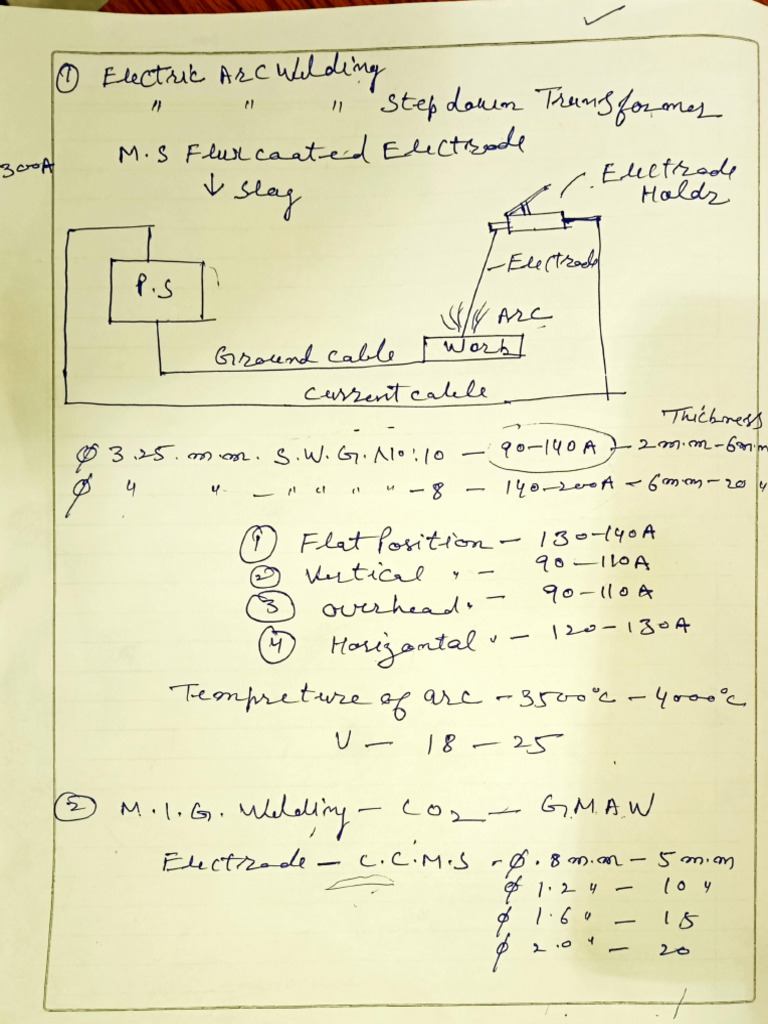 ① Electric Arc Welding
" " " Step down Transformer
300A
M.S Flux coated Electrode
↓ Slag
Electrode
Holdr
P.S
Electrode
Arc
Work
Ground cable
Current cable
Thickness
φ 3.25 m.m. S.W.G. No:10 – 90–140A – 2 m.m – 6 m.m
φ 4 " – " " " " – 8 – 140–200A – 6 m m – 20 "
① Flat Position – 130–140A
② Vertical " – 90–110A
③ Overhead " – 90–110A
④ Horizontal " – 120–130A
Tempreture of arc – 3500°c – 4000°c
V – 18 – 25
② M.I.G. Welding – CO₂ – GMAW
Electrode – C.C.M.S – φ .8 m.m – 5 m.m
φ 1.2 " – 10 "
φ 1.6 " – 15
φ 2.0 " – 20